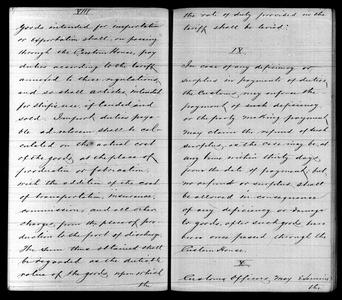 VIII
Goods intended for importation
or exportation shall, on passing
through the Custom House, pay
duties according to the tariff
annexed to these regulations,
and so shall articles intended
for ships' use if landed and
sold. Import duties paya-
ble ad valorem shall be cal-
culated on the actual cost
of the goods, at the place of
production or fabrication,
with the addition of the cost
of transportation, insurance,
commission, and all other
charges from the place of pro-
duction to the port of discharge.
The sum thus obtained shall
be regarded as the dutiable
value of the goods, upon which
the
the rate of duty provided in the
tariff shall be levied.
IX
In case of any deficiency or
surplus in payments of duties,
the Customs may enforce the
payment of such deficiency
or the party making payment
may claim the refund of such
surplus, as the case may be, at
any time within thirty days,
from the date of payment but
no refunds or surplus shall
be allowed in consequence
of any deficiency or damage
to goods, after such goods have
been once passed through the
Custom House.
X
Customs Officers may
the